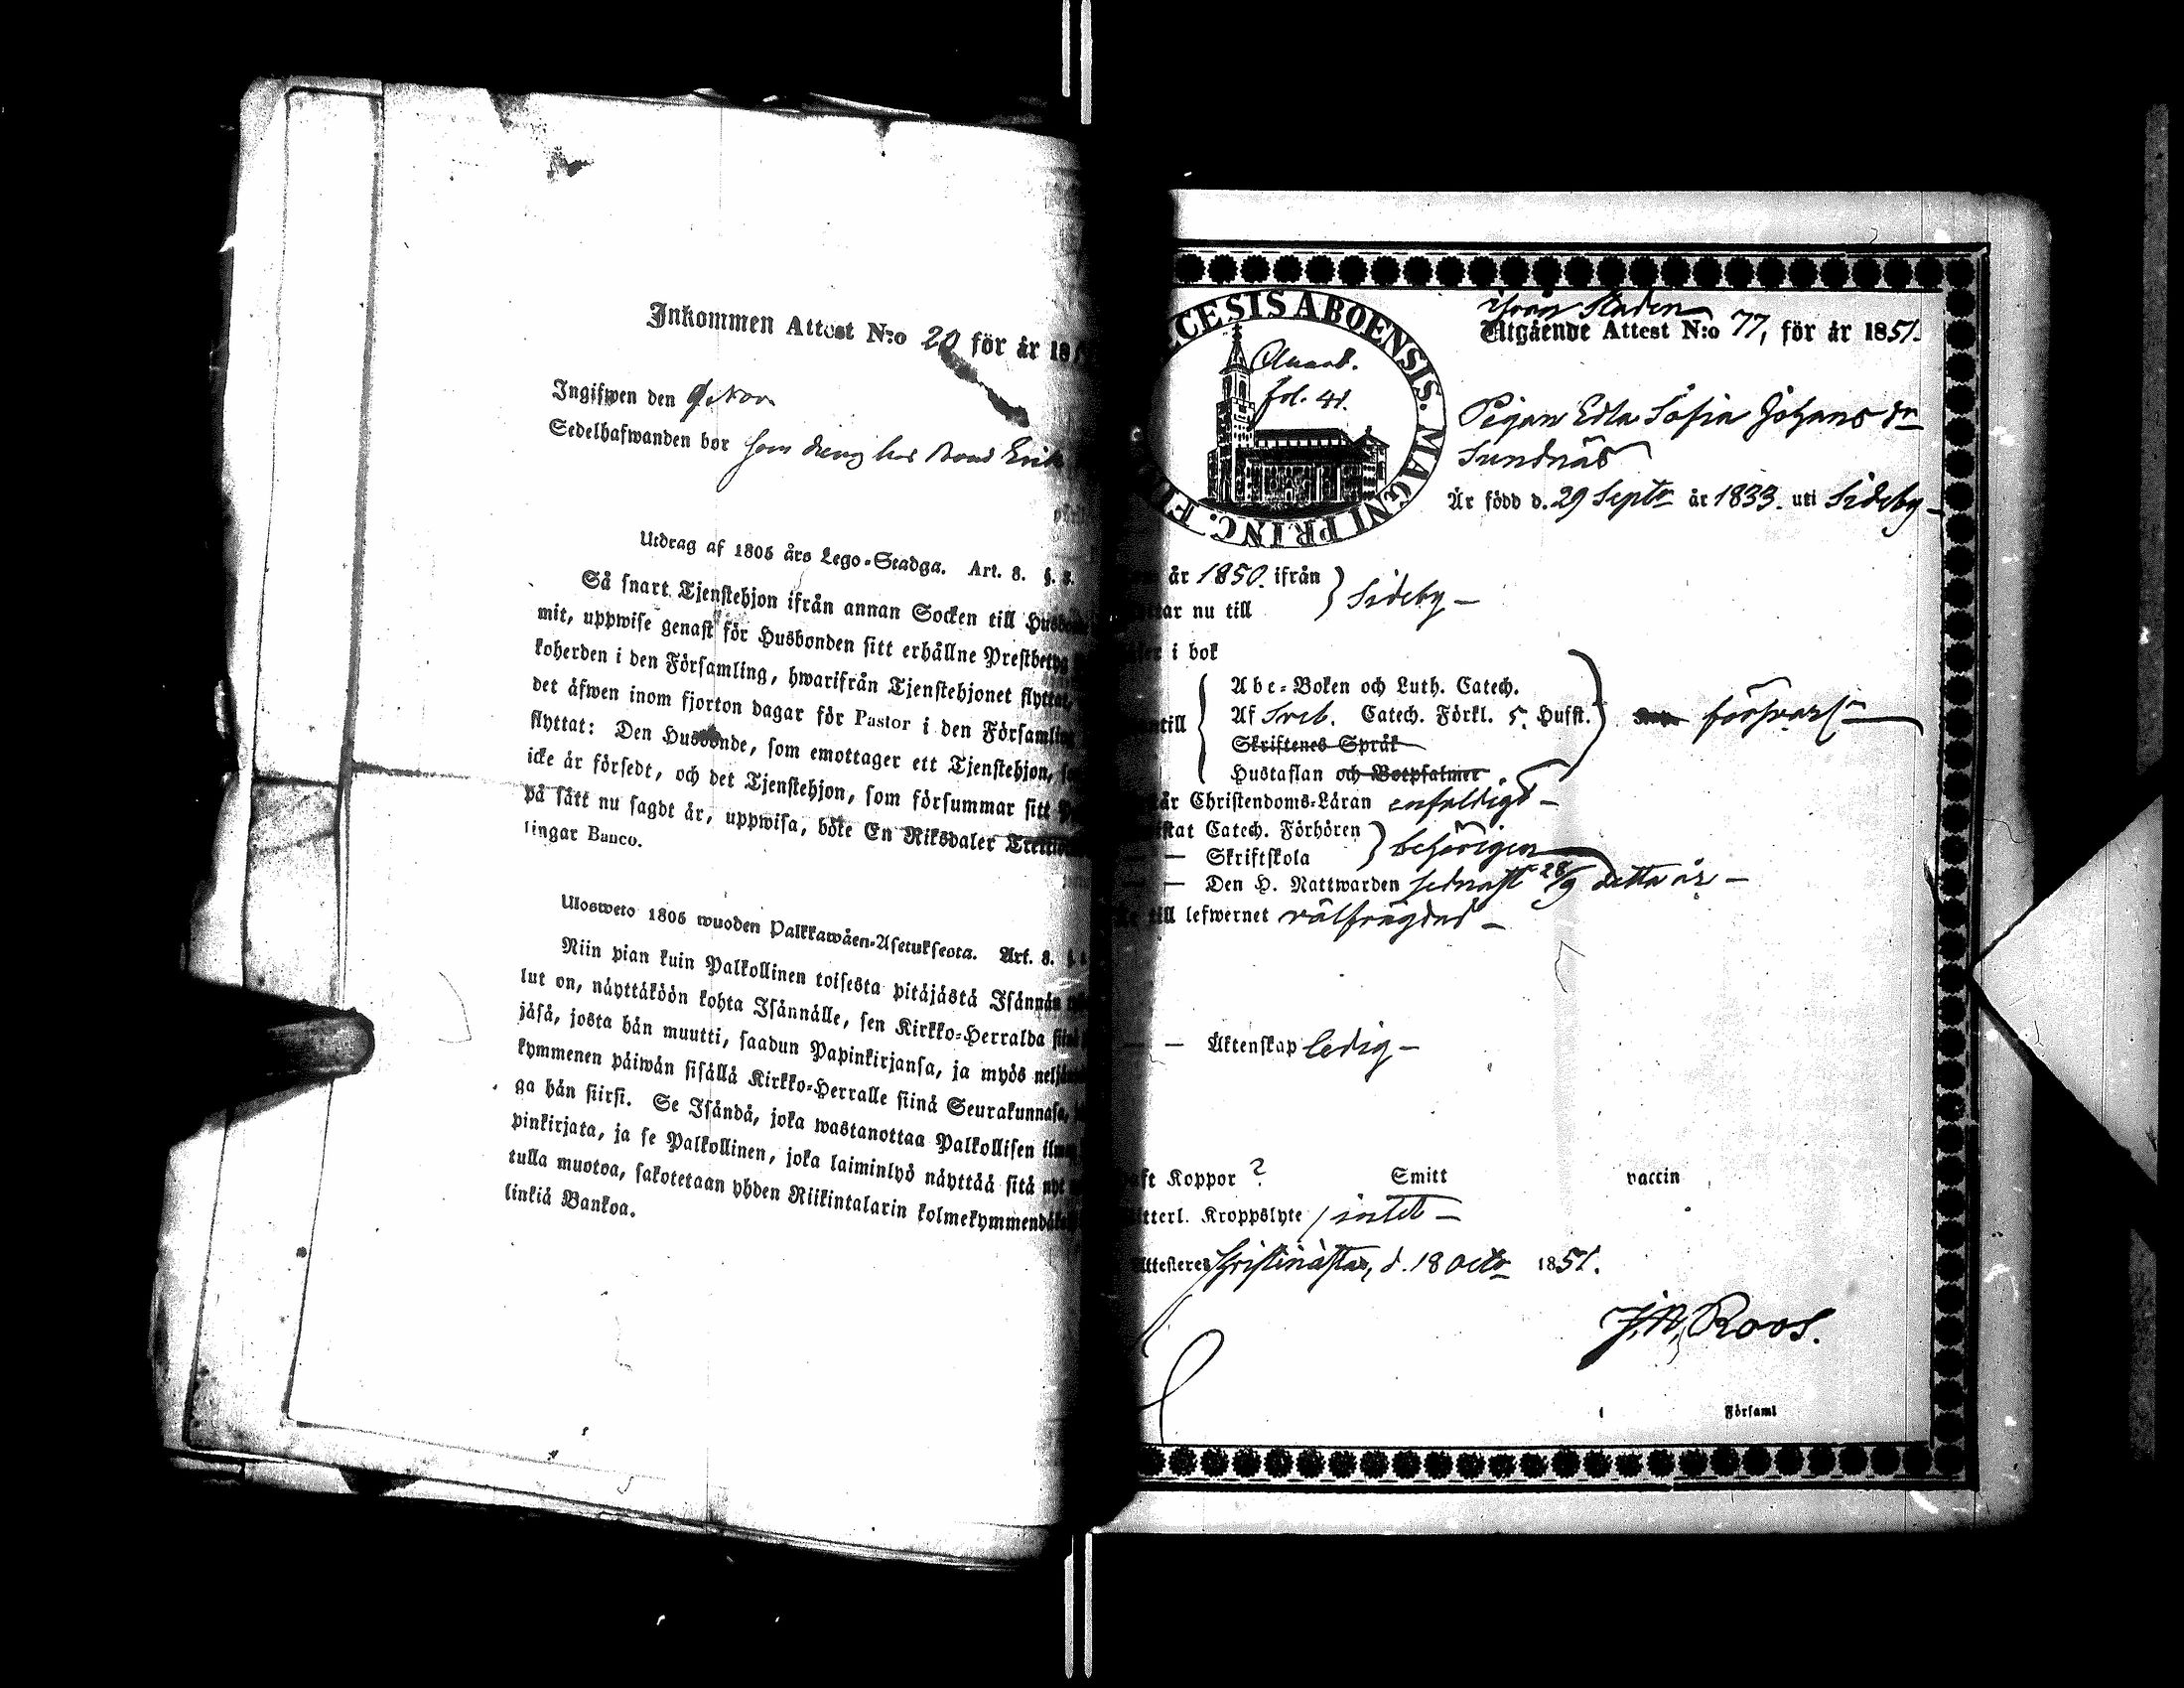 Inkommen Attest N:o 20 för år 18
Ingifwen den 9 Nov
Sedelhafwanden bor som dreng hos Bond Erik
Utdrag af 1805 års Lego-Stadga. Art. 8. §. 8.
Så snart Tjenstehjon ifrån annan Socken till Husbonde
mit, uppwise genast för Husbonden sitt erhållne Prestbetyg
koherden i den Församling, hwarifrån Tjenstehjonet flyttat,
det äfwen inom fjorton dagar för Pastor i den Församling
flyttat: Den Husbonde, som emottager ett Tjenstehjon,
icke är försedt, och det Tjenstehjon, som försummar sitt
på sätt nu sagdt är, uppwisa, böte En Riksdaler Trettio
lingar Banco.
Ulosweto 1805 wuoden Palkkawäen-Asetuksesta. Art. 8. §.
Niin pian kuin Palkollinen toisesta pitäjästä Isännän
lut on, näyttäköön kohta Isännälle, sen Kirkko-Herralda siinä
jäsä, josta hän muutti, saadun Papinkirjansa, ja myös neljän
kymmenen päiwän sisällä Kirkko-Herralle siinä Seurakunnasa,
ga hän siirsi. Se Isändä, joka wastanottaa Palkollisen ilman
pinkirjata, ja se Palkollinen, joka laiminlyö näyttää sitä nyt
tulla muotoa, sakotetaan yhden Riikintalarin kolmekymmendä
linkiä Bankoa.
CESIS ABOENSIS. MAGNI PRINC. F
fol. 41.
ifrån Staden
Utgående Attest N:o 77, för år 1851.
Pigan Edla Sofia Johans dr
Sundnäs
Är född d. 29 Septr år 1833. uti Sideby
år 1850. ifrån
tar nu till } Sideby
i bok
till { Abc-Boken och Luth. Catech.
Af Sveb. Catech. Förkl. 5. Hufst. } försvarl
Skriftenes Språk
Hustaflan och Botpsalmer.
är Christendoms-Läran enfaldigt
stat Catech. Förhören
— Skriftskola } behörigen
— Den H. Nattwarden sednast 28/9 detta år
till lefwernet välfrägdad
— — Äktenskap ledig
aft Koppor ? Smitt vaccin
tterl. Kroppslyte intet
Attesteres Kristinästad, d. 18 octr 1851.
J.W. Roos.
i Församl